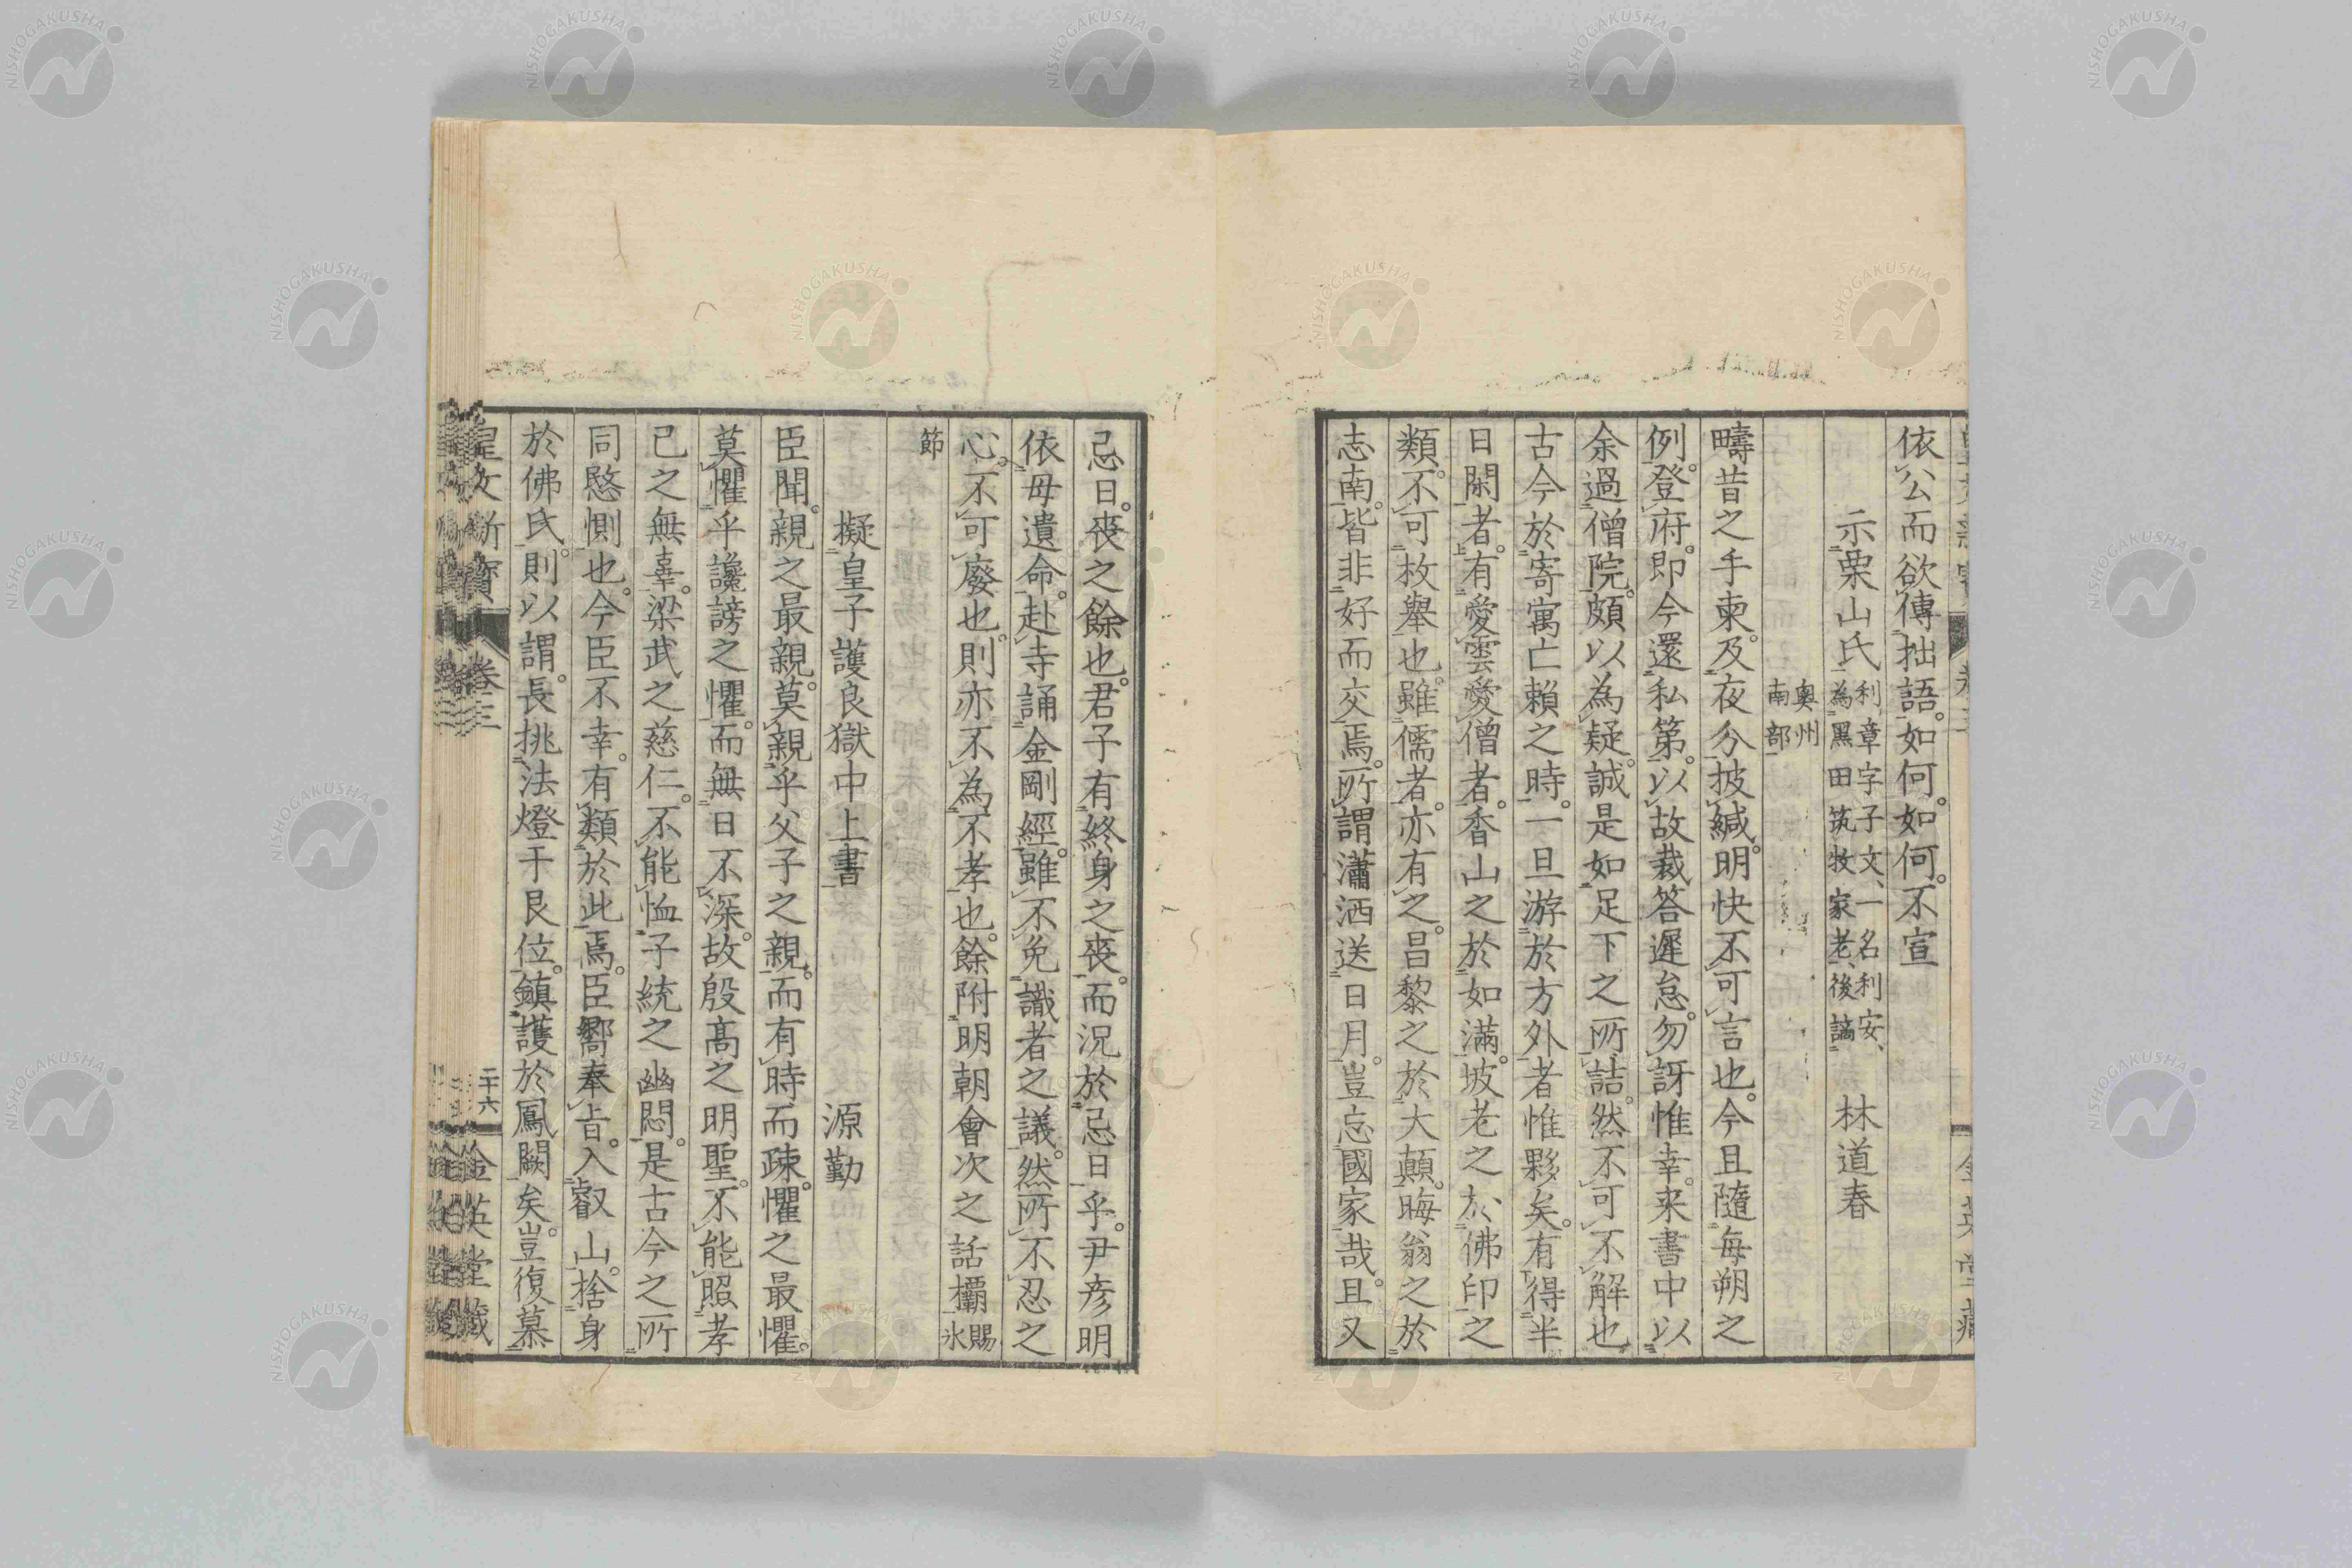 依公而欲傳拙語。如何。如何。不宣
示栗山氏 利章字子文、一名利安、為黒田筑牧家老、後謫 林道春
奥州南部
疇昔之手柬。及夜分披緘。明快不可言也。今且隨每朔之
例。登府。即今還私第。以故裁答遲怠。勿訝惟幸。来書中以
余過僧院。頗以為疑。誠是如足下之所詰。然不可不解也
古今於寄寓亡賴之時。一旦游於方外者惟夥矣。有得半
日閑者。有愛雲愛僧者。香山之於如滿。坡老之於佛印之
類。不可枚舉也。雖儒者。亦有之。昌黎之於大顛。晦翁之於
志南。皆非好而交焉。所謂瀟洒送日月。豈忘國家哉。且又
忌日。喪之餘也。君子有終身之喪。而況於忌日乎。尹彦明
依母遺命。赴寺誦金剛經。雖不免識者之議。然所不忍之
心。不可廢也。則亦不為不孝也。餘附明朝會次之話欛 賜氷
節
擬皇子護良獄中上書 源勤
臣聞。親之最親。莫親乎父子之親。而有時而疎。懼之最懼。
莫懼乎讒謗之懼。而無日不深。故殷髙之明聖。不能照孝
己之無辜。梁武之慈仁。不能恤子統之幽悶。是古今之所
同愍惻也。今臣不幸。有類於此焉。臣嚮奉旨。入叡山。捨身
於佛氏。則以謂。長挑法燈于艮位。鎮護於鳳闕矣。豈復慕
皇文新寶 卷三 二十六 金英堂藏
NISHOGAKUSHA